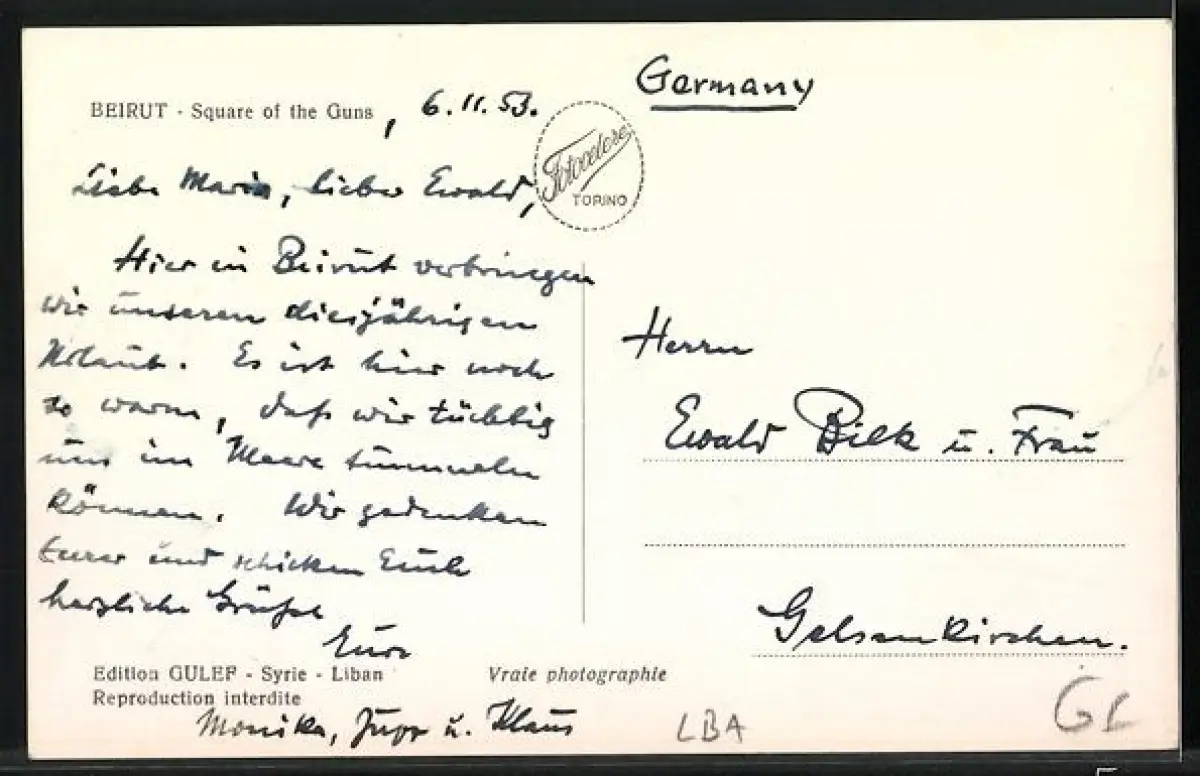 Germany
BEIRUT - Square of the Guns , 6.11.53.
Fotocelere
TORINO
Liebe Maria, lieber Ewald,
Hier in Beirut verbringen
wir unseren diesjährigen
Urlaub. Es ist hier noch
so warm, daß wir tüchtig
uns im Meere tummeln
können. Wir gedenken
Eurer und schicken Euch
herzliche Grüße
Eure
Monika, Jupp u. Klaus
Edition GULEF - Syrie - Liban
Reproduction interdite
Vraie photographie
Herrn
Ewald Bilk u. Frau
Gelsenkirchen.
LBA